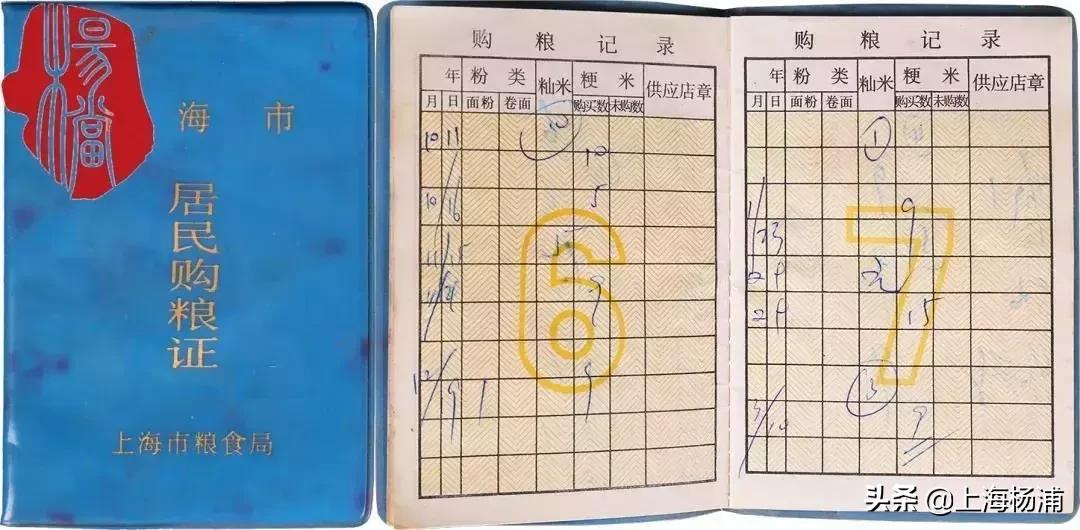 杨档
海市
居民购粮证
上海市粮食局
购粮记录
年 粉类 籼米 粳米 供应店章
月 日 面粉 卷面 购买数 未购数
10 11
10
10/16 5
11/15 15
9
12/19 1 9
6
购粮记录
年 粉类 籼米 粳米 供应店章
月 日 面粉 卷面 购买数 未购数
①
1/23 9
15
③
3/10 9
7
头条 @上海杨浦